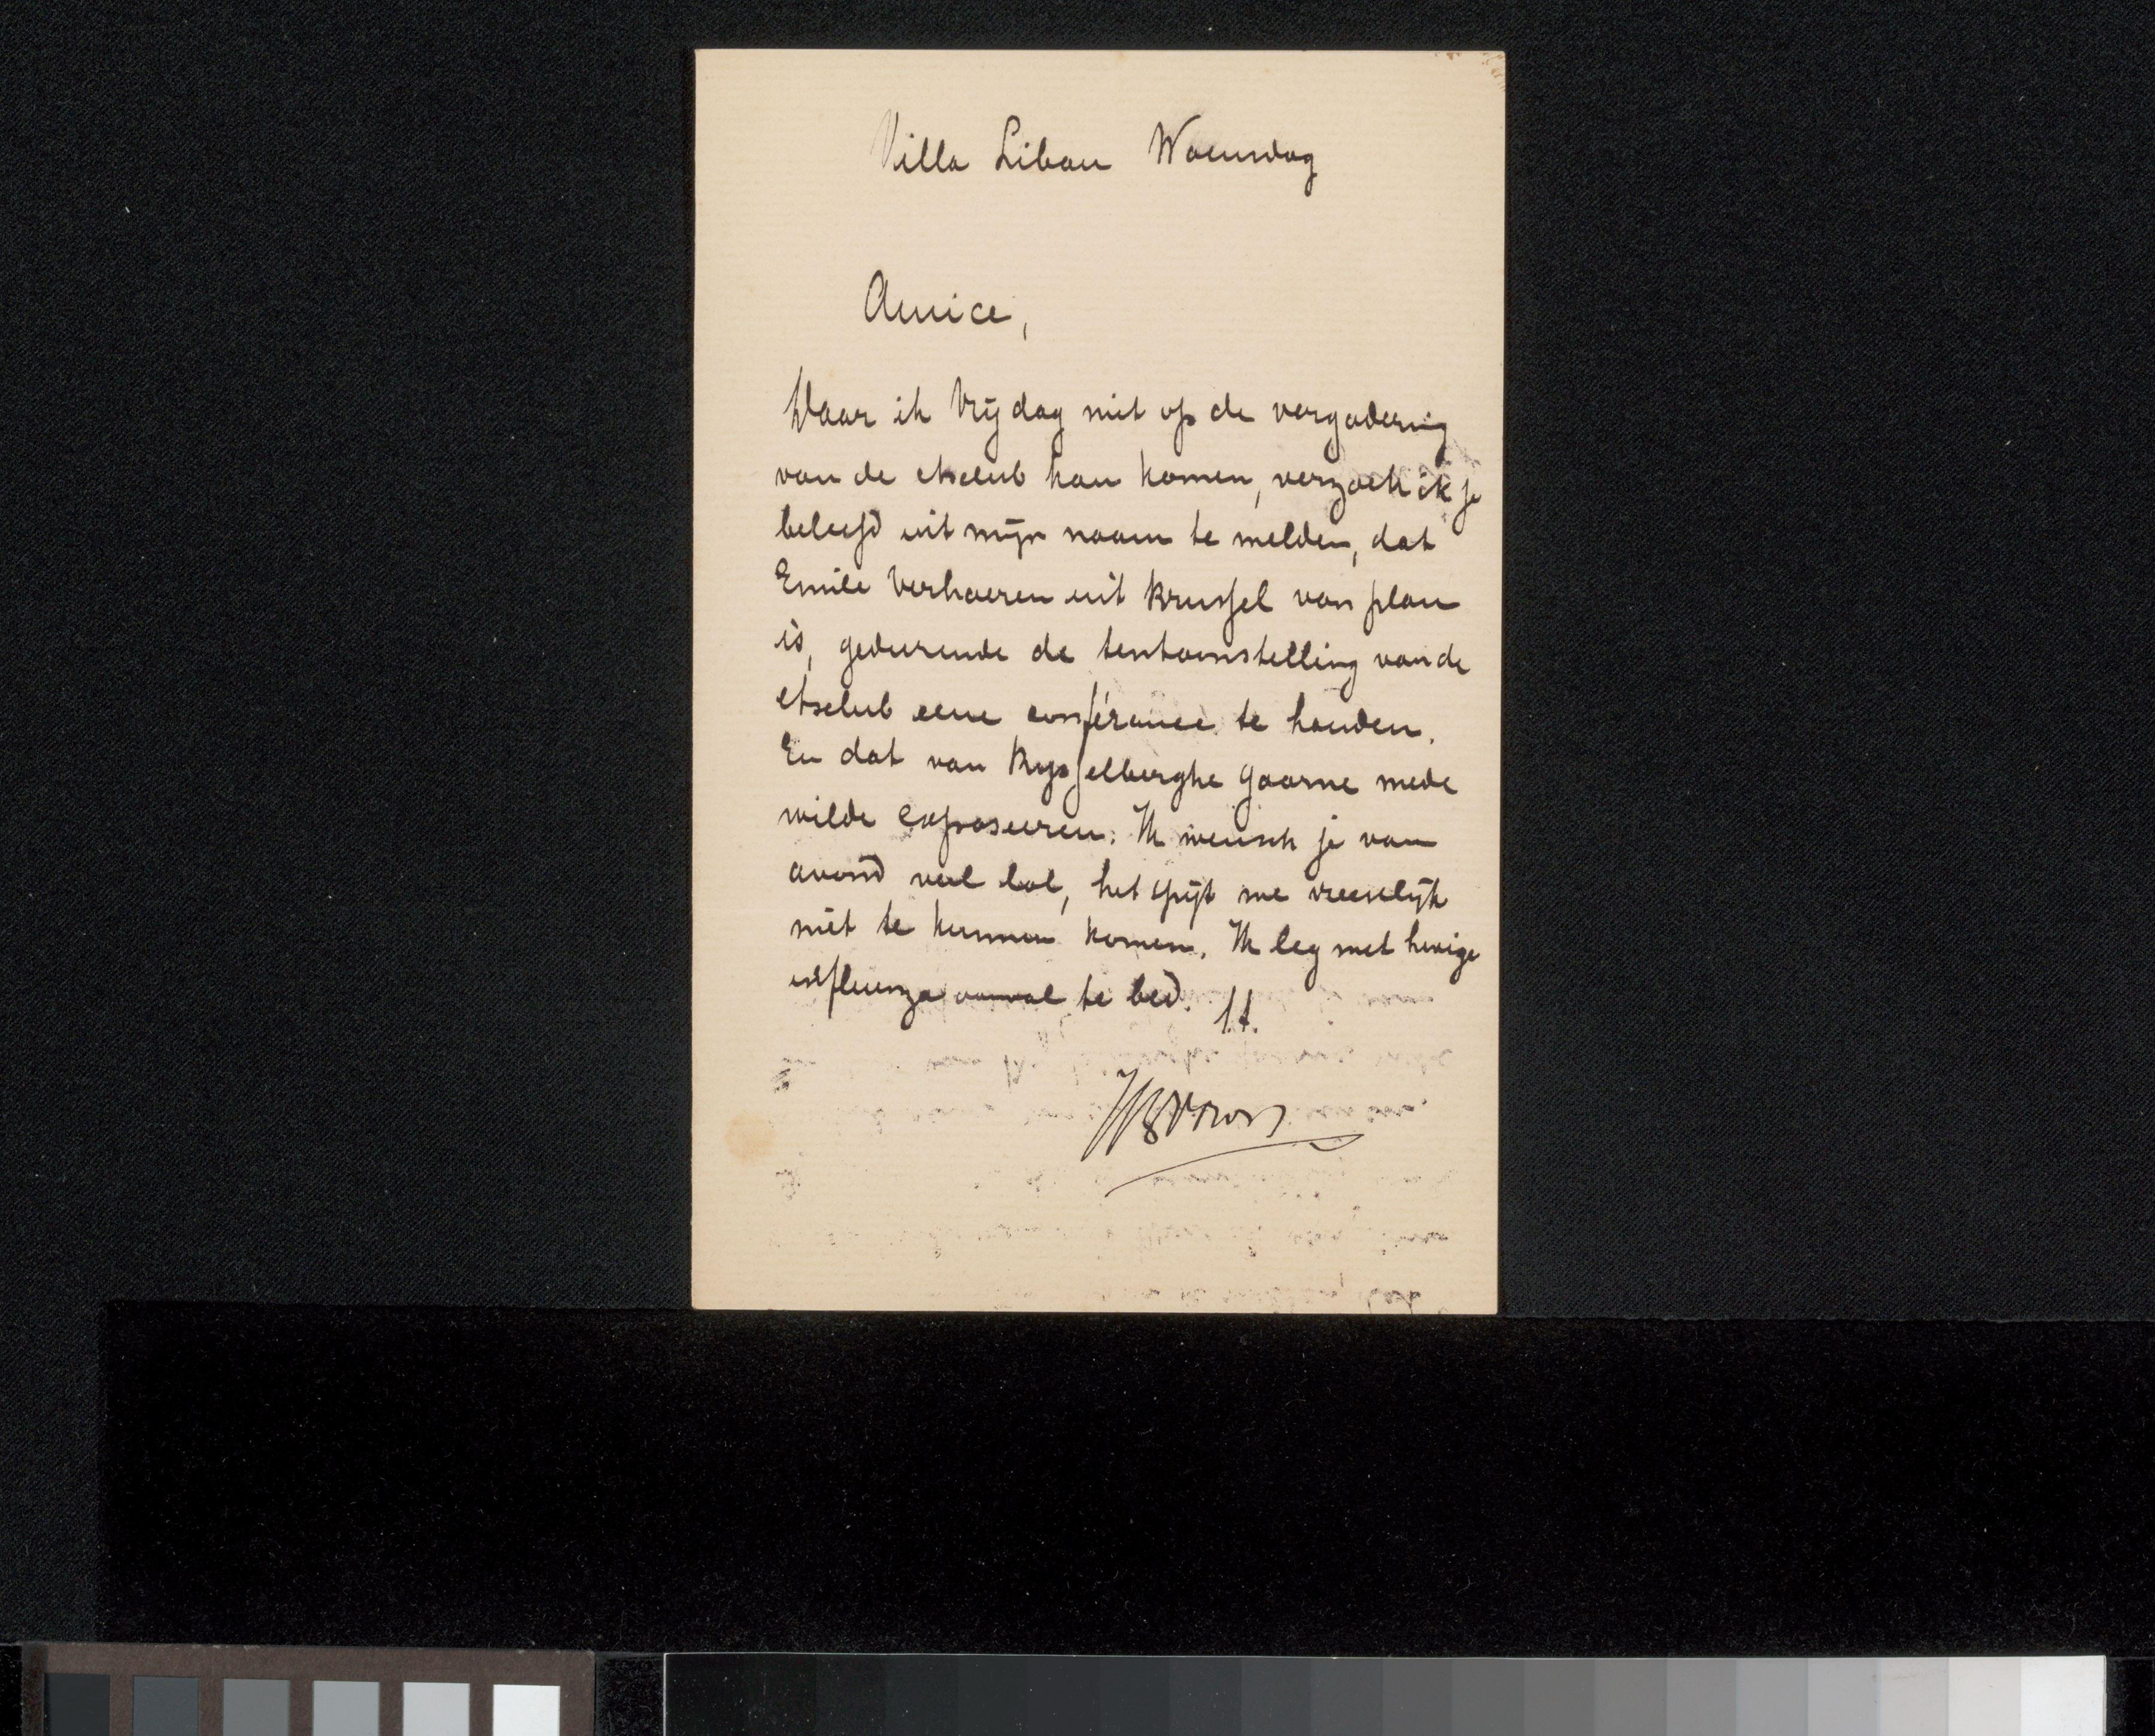 Villa Liban Woensdag
Amice,
Daar ik Vrijdag niet op de vergadering
van de etsclub kan komen, verzoek ik je
beleefd uit mijn naam te melden, dat
Emile Verhaeren uit Brussel van plan
is, gedurende de tentoonstelling van de
etsclub eene conférance te houden.
En dat van Rysselberghe gaarne mede
wilde exposeeren. Ik wensch je van
avond veel lol, het spijt me vreeselijk
niet te kunnen komen. Ik leg met hevige
influenza aanval te bed. t.t.